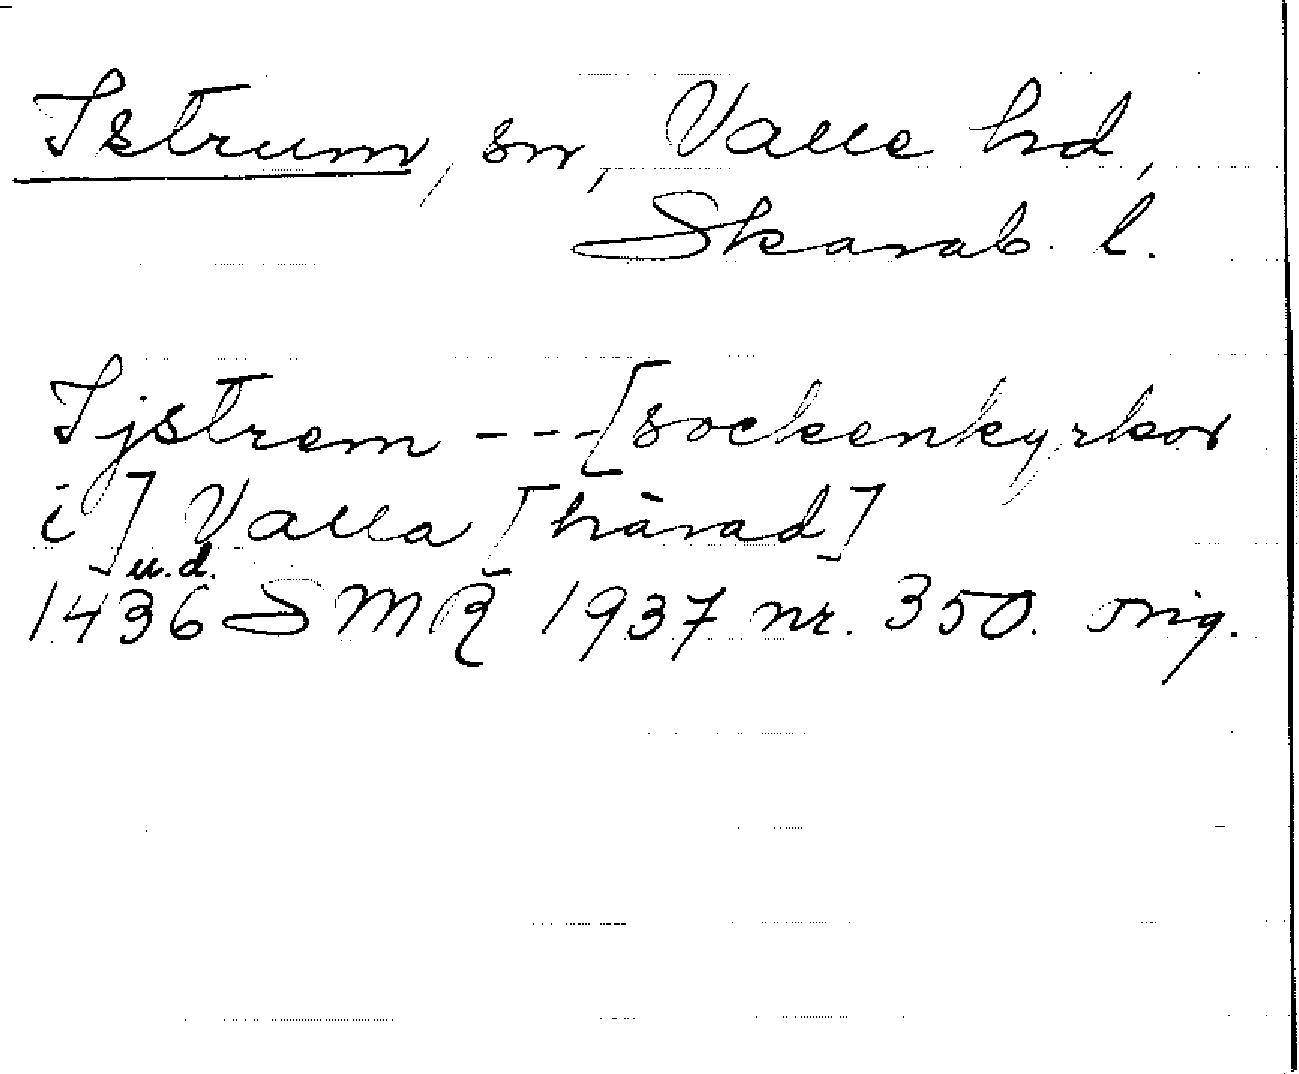 Istrum, sn, Valle hd,
Skarab. l.
Ijstrem --- [sockenkyrkor
i] Valla [härad]
u.d.
1436 SMR 1937 nr. 350. orig.